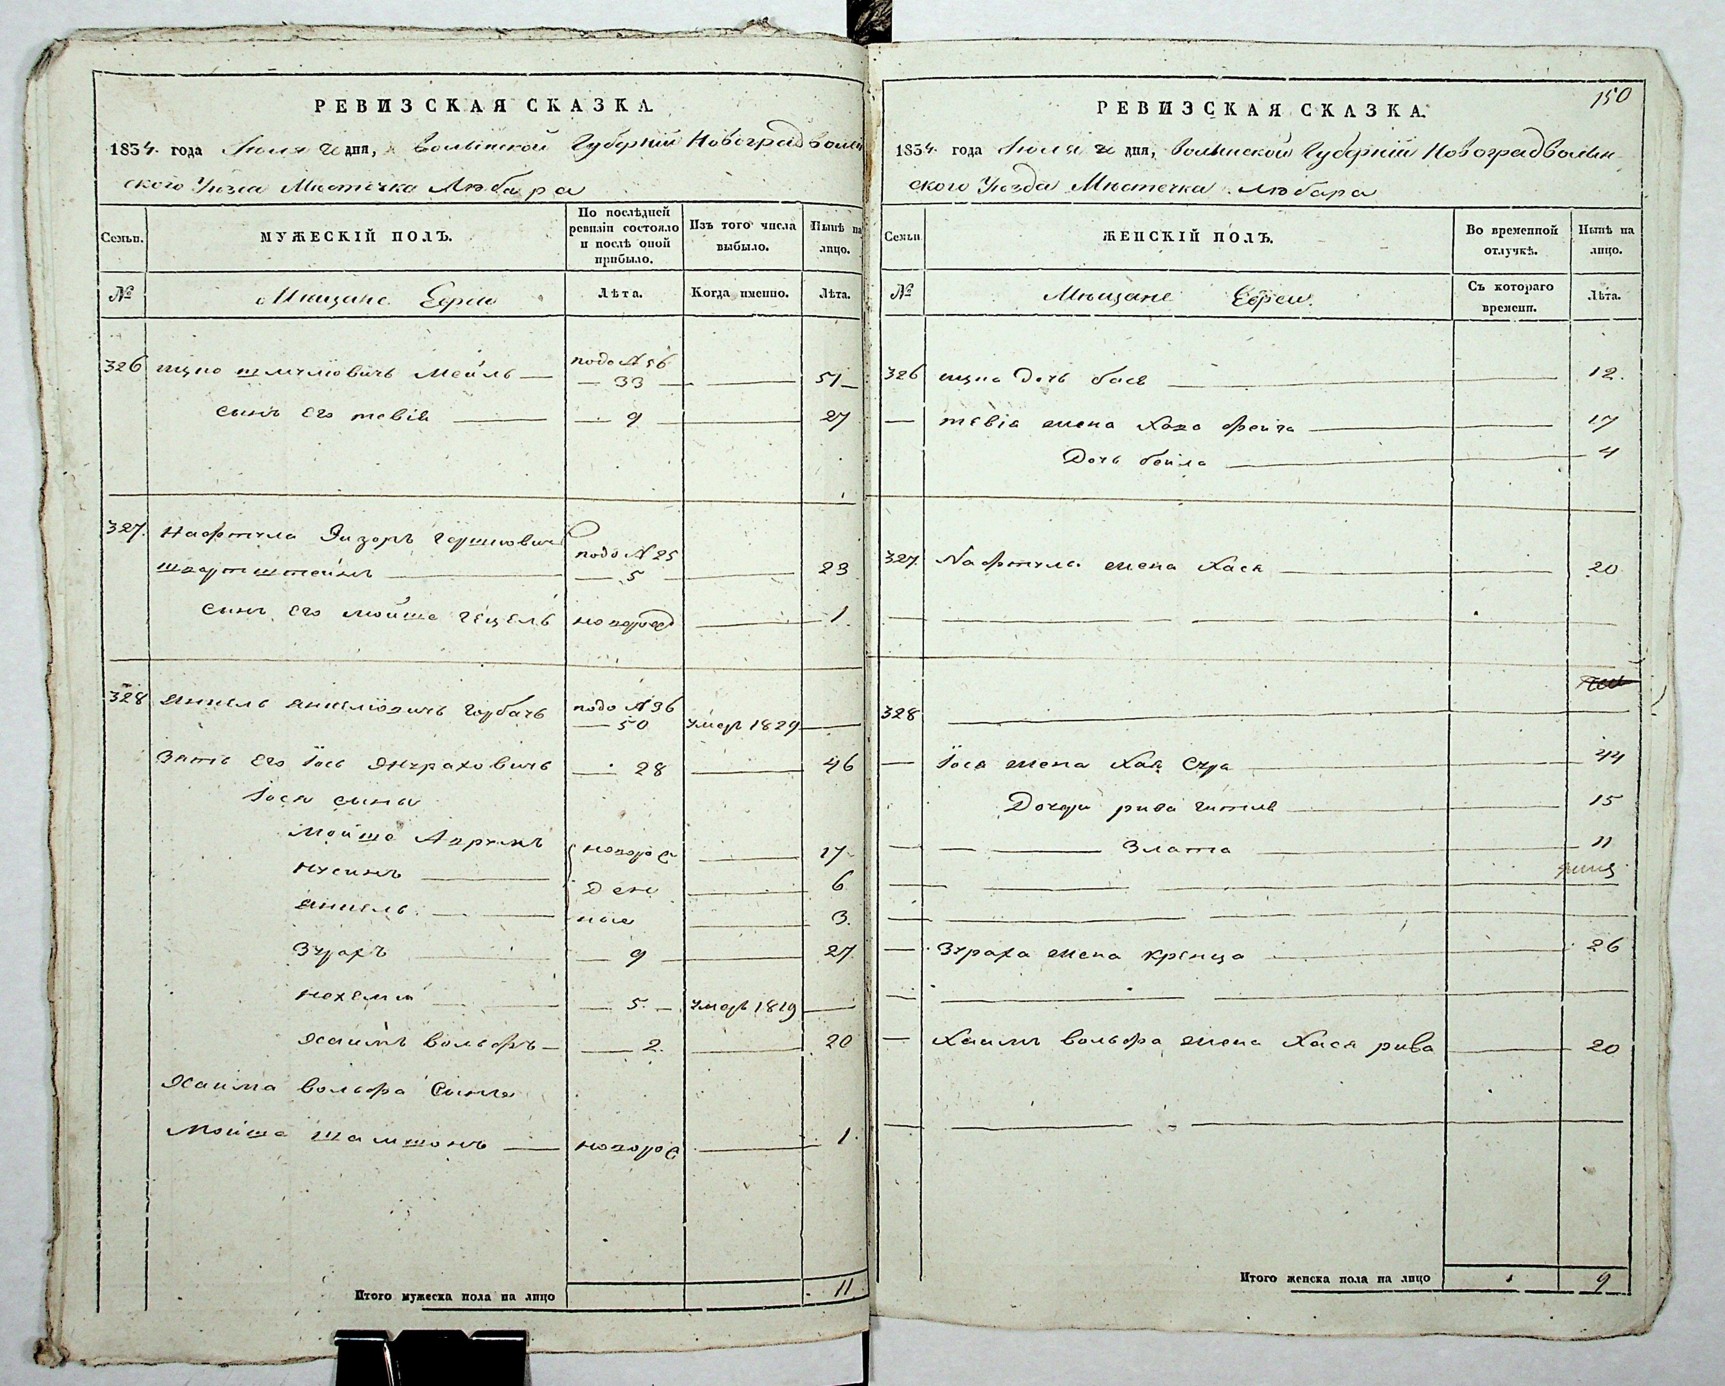 РЕВИЗСКАЯ СКАЗКА.
1834 года Июля дня, Волынской Губерніи Новоградволын
ского Уезда Мѣстечка Любара
Семьи. МУЖЕСКІЙ ПОЛЪ. По послѣдней ревизіи состояло и послѣ оной прибыло. Изъ того числа выбыло. Нынѣ на лицо.
№ Мѣщане Евреи Лѣта. Когда именно. Лѣта.
326 Шмулiовичъ подо № 56 33 51
сынъ его тевія 9 27
327. Нафтула Гершковичъ подо № 25
5 23
сынъ его мойше гецель новород 1
328 Янкель Янкелiовичъ Горбачъ подо № 36 50 умеръ 1829
Зять его Іось 28 46
Іося сыны
Мойше Аврумъ новорож 17
Нусинъ ден 6
Янкель ные 3.
Зурахъ 9 27
Нехемія 5 умеръ 1819
Хаимъ Вольфъ 2. 20
Хаима вольфа сынъ
Мойше Шамшонъ новорож 1.
Итого мужеска пола на лицо 11
150
РЕВИЗСКАЯ СКАЗКА.
1834 года Июля дня, Волынской Губерніи Новоградволын
ского Уезда Мѣстечка Любара
Семьи ЖЕНСКІЙ ПОЛЪ. Во временной отлучкѣ. Нынѣ на лицо.
№ Мѣщане Евреи. Съ котораго времени. Лѣта.
326 дочь бася 12.
тевія жена фейга 17
Дочь бейла 4
327. Нафтулы жена Хася 20
328
Іося жена Хая Сура 44
Дочери рива гитля 15
Злата 11
Зураха жена кренца 26
Хаимъ вольфа жена Хася рива 20
Итого женска пола на лицо 9